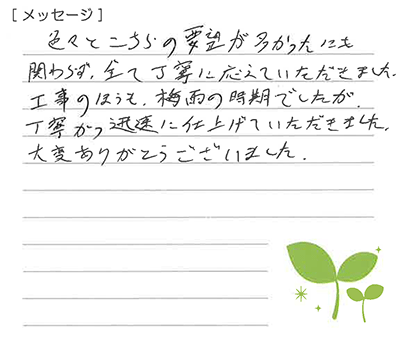 [メッセージ]
色々とこちらの要望が多かったにも
関わらず、全て丁寧に応えていただきました。
工事のほうも、梅雨の時期でしたが、
丁寧かつ迅速に仕上げていただきました。
大変ありがとうございました。